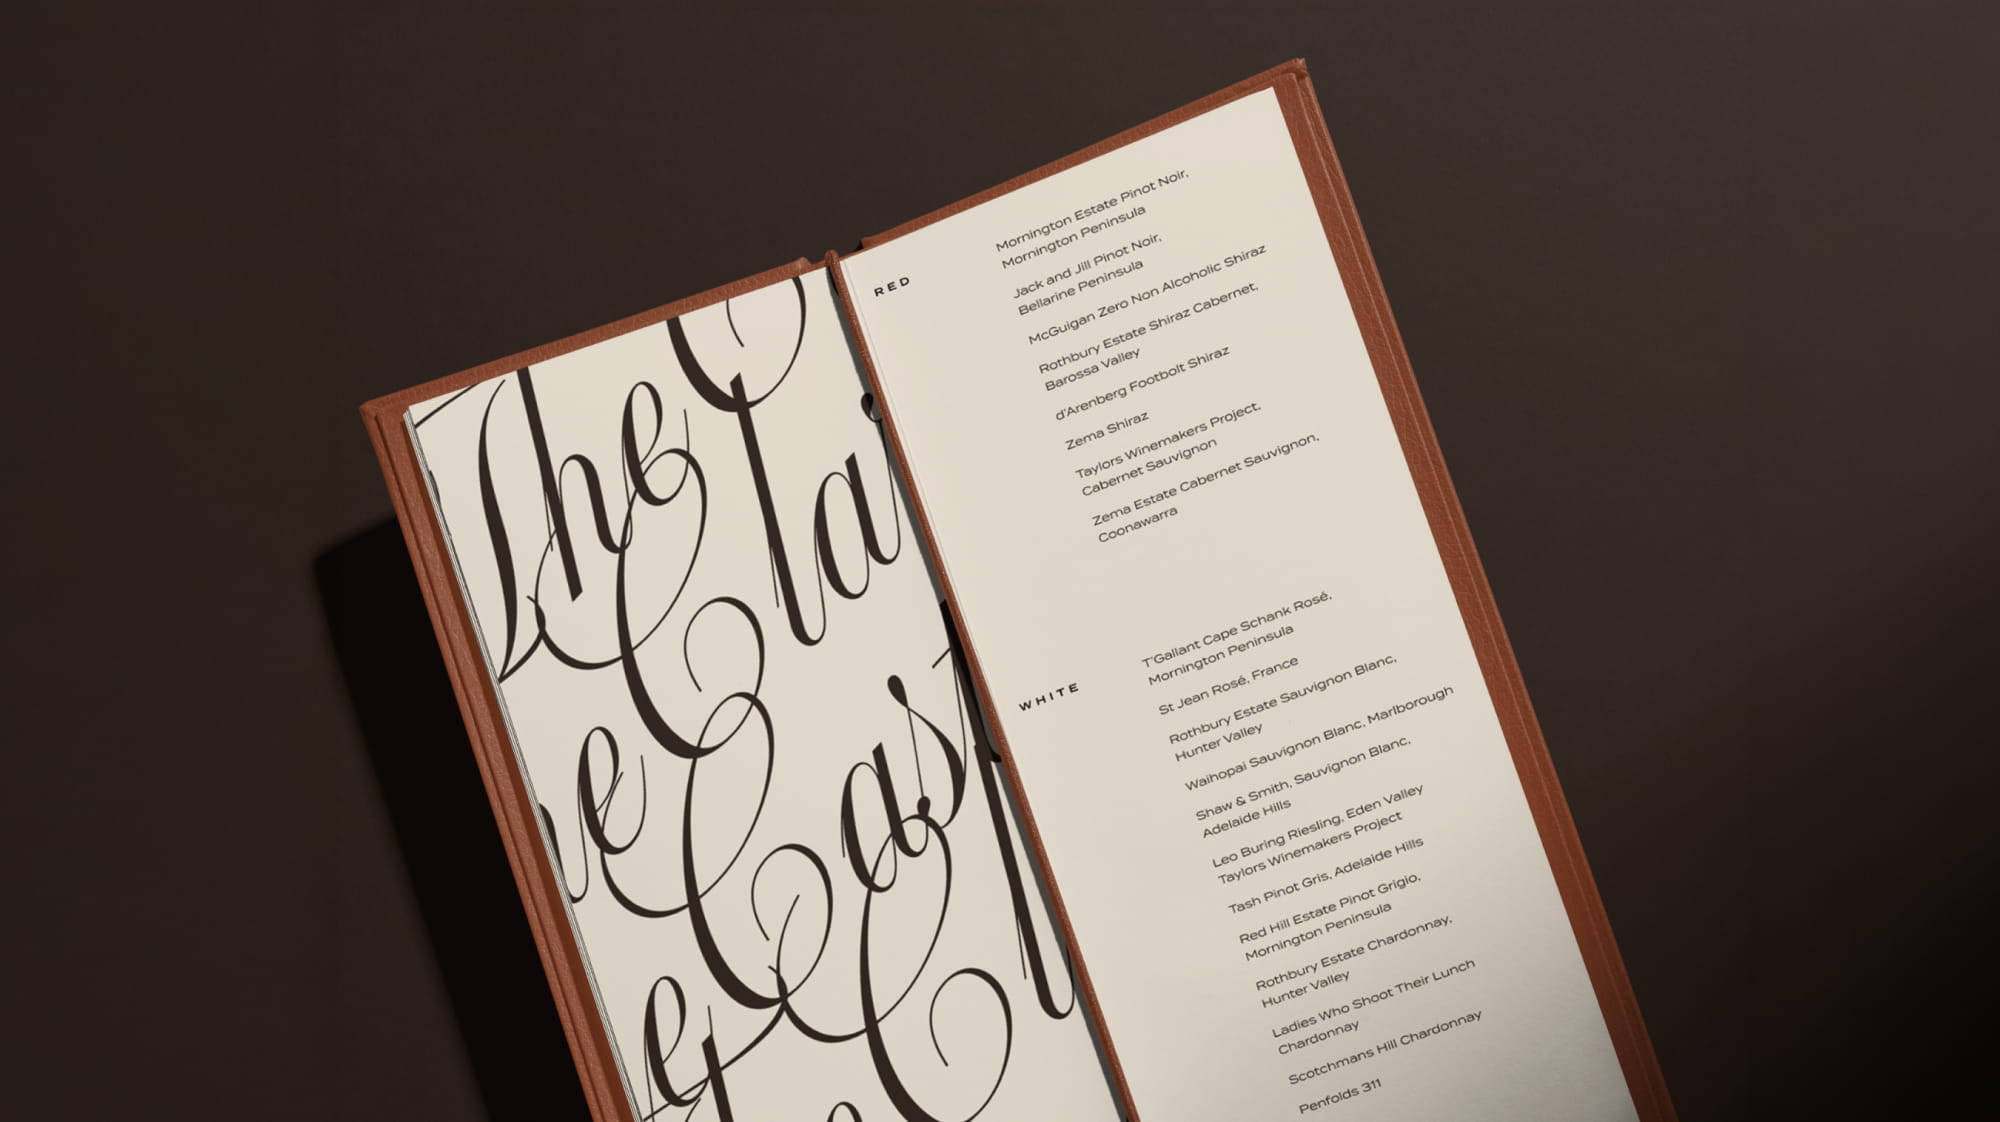 The
Ca
e Cast
e
RED
Mornington Estate Pinot Noir,
Mornington Peninsula
Jack and Jill Pinot Noir,
Bellarine Peninsula
McGuigan Zero Non Alcoholic Shiraz
Rothbury Estate Shiraz Cabernet,
Barossa Valley
d'Arenberg Footbolt Shiraz
Zema Shiraz
Taylors Winemakers Project,
Cabernet Sauvignon
Zema Estate Cabernet Sauvignon,
Coonawarra
WHITE
T'Gallant Cape Schank Rosé,
Mornington Peninsula
St Jean Rosé, France
Rothbury Estate Sauvignon Blanc,
Hunter Valley
Waihopai Sauvignon Blanc, Marlborough
Shaw & Smith, Sauvignon Blanc,
Adelaide Hills
Leo Buring Riesling, Eden Valley
Taylors Winemakers Project
Tash Pinot Gris, Adelaide Hills
Red Hill Estate Pinot Grigio,
Mornington Peninsula
Rothbury Estate Chardonnay,
Hunter Valley
Ladies Who Shoot Their Lunch
Chardonnay
Scotchmans Hill Chardonnay
Penfolds 311